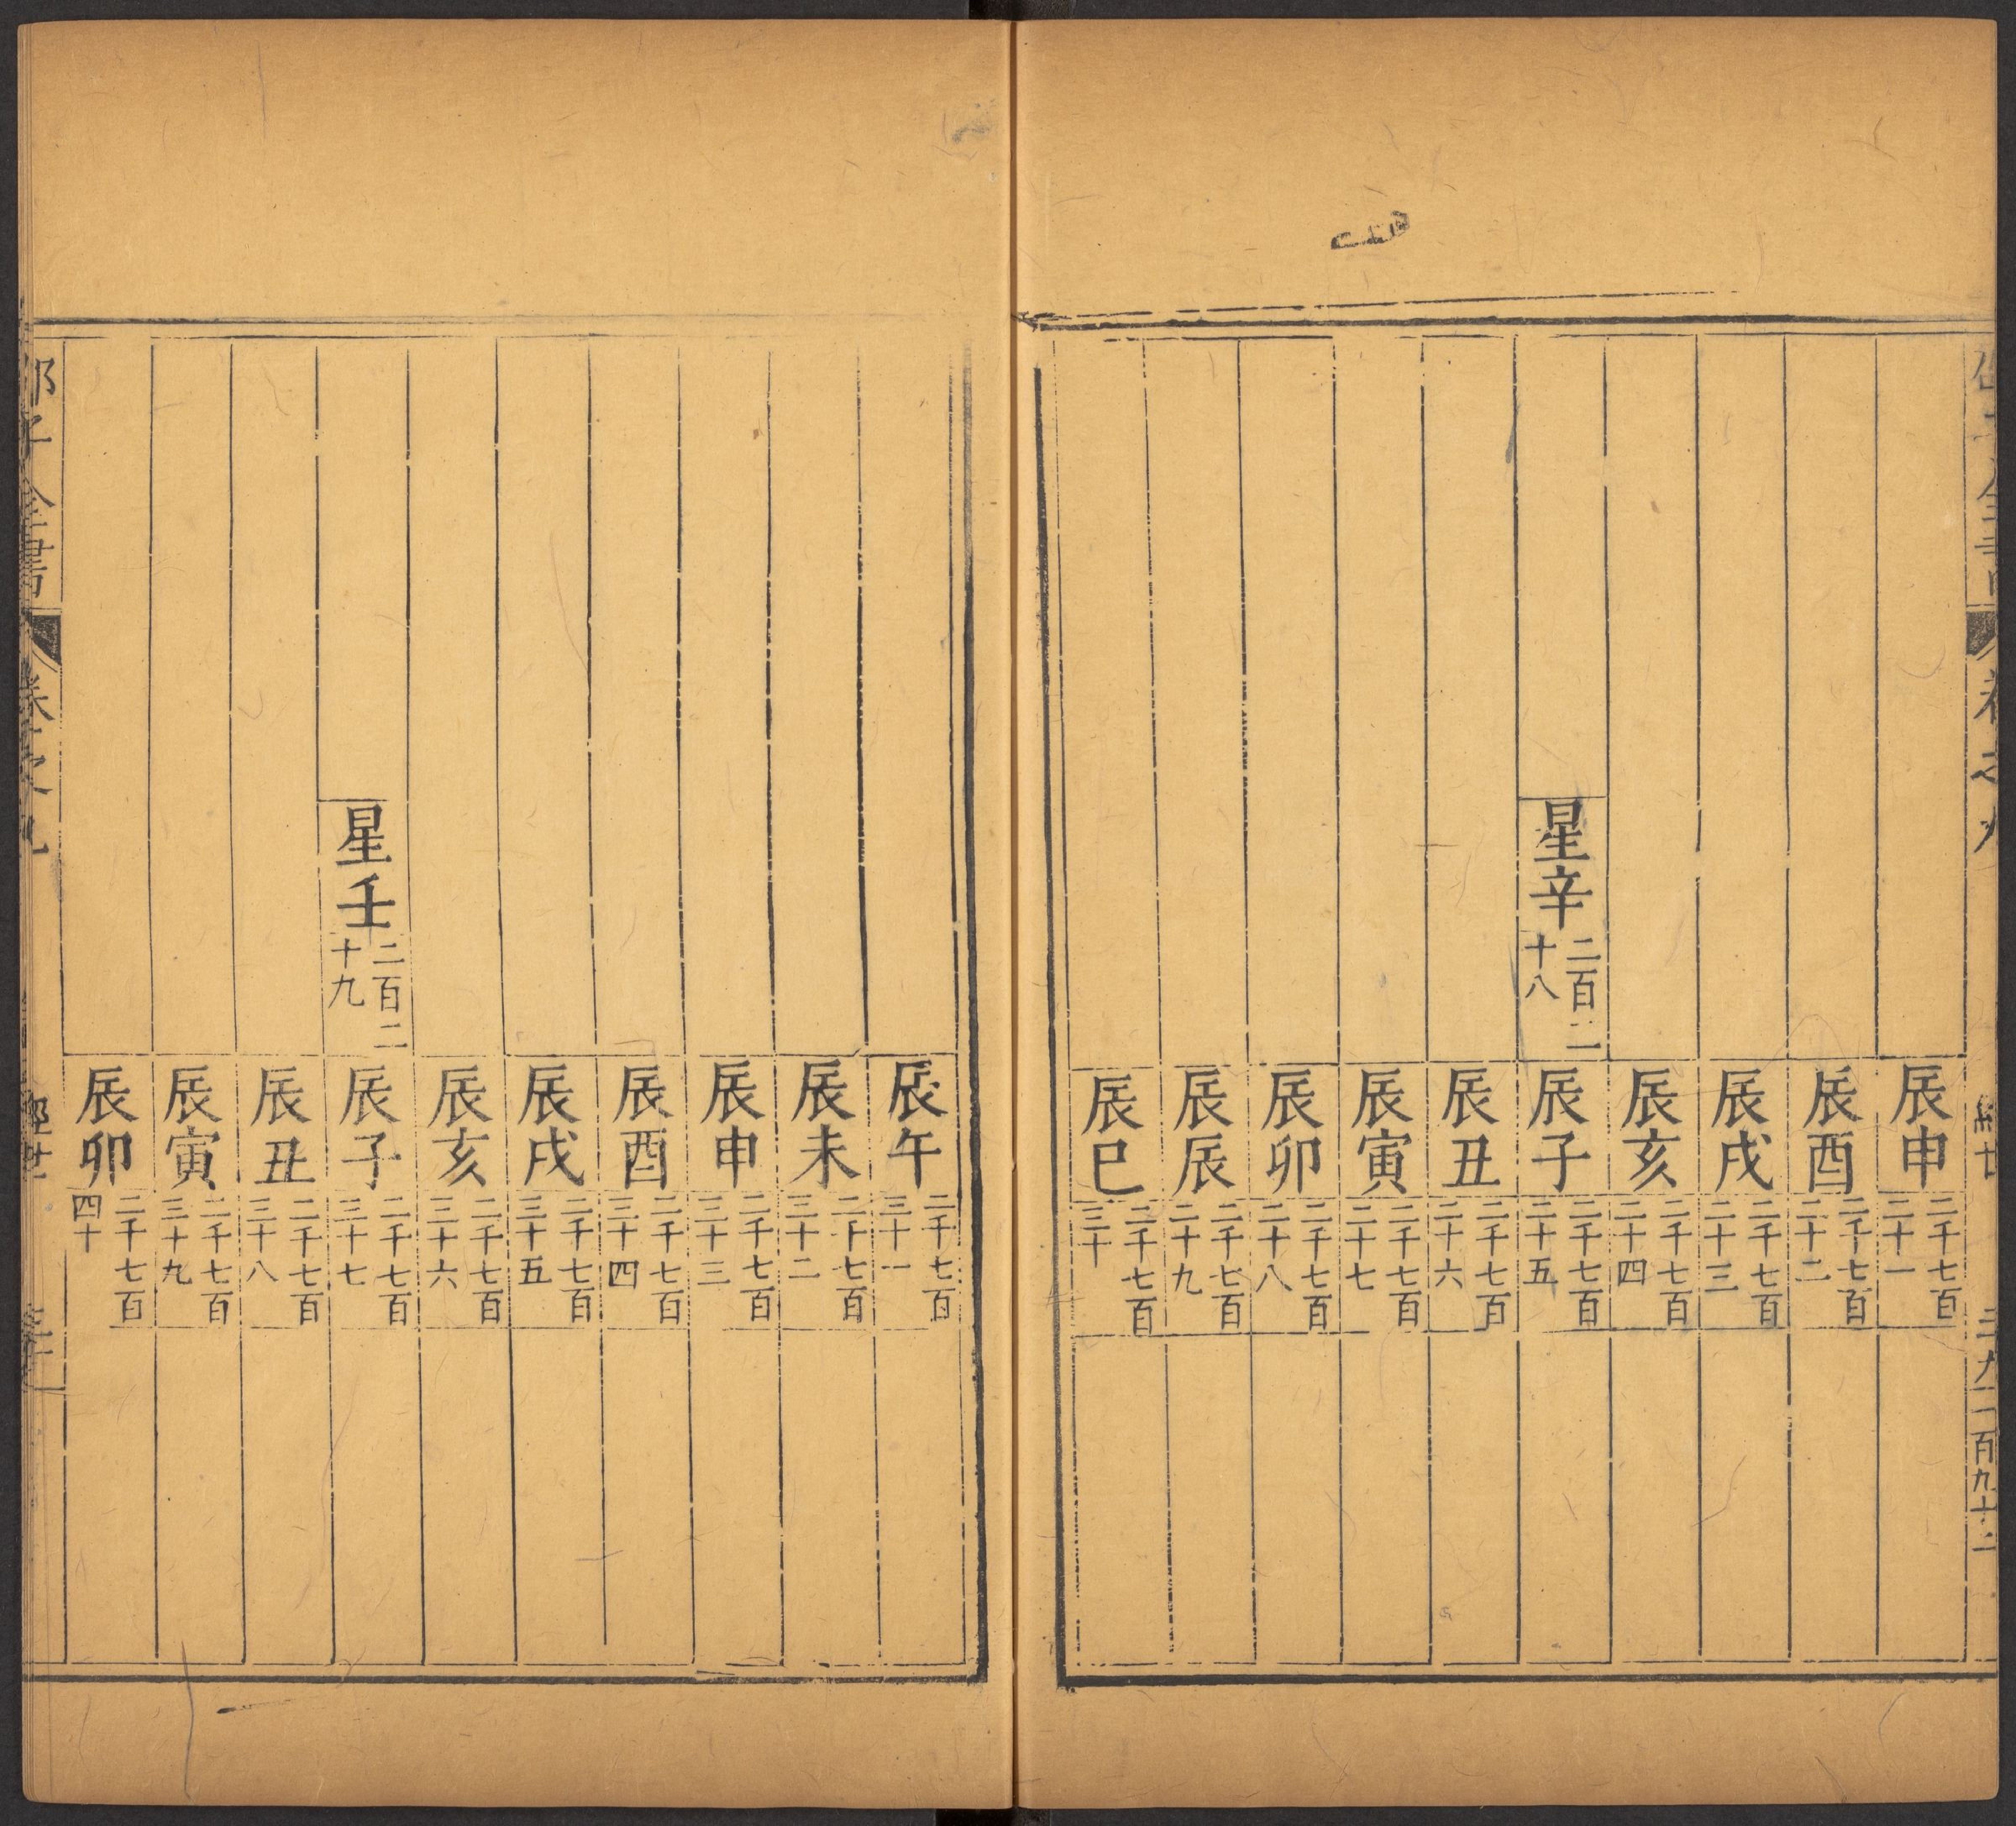 辰申二千七百二十一
辰酉二千七百二十二
辰戌二千七百二十三
辰亥二千七百二十四
星辛二百二十八辰子二千七百二十五
辰丑二千七百二十六
辰寅二千七百二十七
辰卯二千七百二十八
辰辰二千七百二十九
辰巳二千七百三十
辰午二千七百三十一
辰未二千七百三十二
辰申二千七百三十三
辰酉二千七百三十四
辰戌二千七百三十五
辰亥二千七百三十六
星壬二百二十九辰子二千七百三十七
辰丑二千七百三十八
辰寅二千七百三十九
辰卯二千七百四十